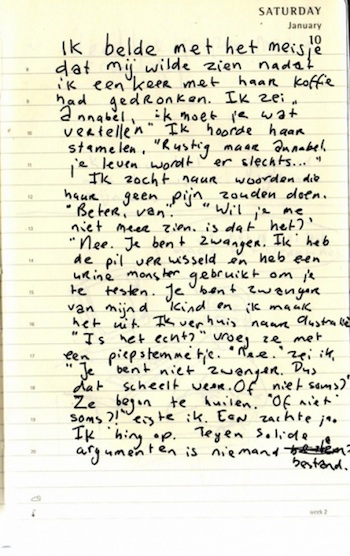 SATURDAY
January
10
Ik belde met het meisje
dat mij wilde zien nadat
ik een keer met haar koffie
had gedronken. Ik zei "
Annabel, ik moet je wat
vertellen" Ik hoorde haar
stamelen. "Rustig maar Annabel,
je leven wordt er slechts..."
Ik zocht naar woorden die
haar geen pijn zouden doen.
"Beter, van." "Wil je me
niet meer zien. is dat het?"
"Nee. Je bent zwanger. Ik heb
de pil verwisseld en heb een
urine monster gebruikt om je
te testen. Je bent zwanger
van mijnd kind en ik maak
het uit. Ik verhuis naar Australië"
"Is het echt?" vroeg ze met
een piepstemmetje. "Nee." zei ik,
"Je bent niet zwanger. Dus
dat scheelt weer. Of niet soms?"
Ze begon te huilen. "Of niet
soms?!" eiste ik. Een zachte ja.
Ik hing op. Tegen solide
argumenten is niemand
bestand.
9
10
11
12
13
14
15
16
17
18
19
20
week 2